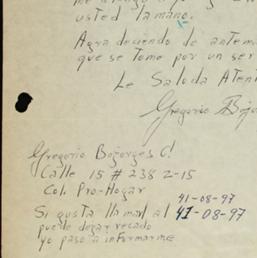 usted la mano.
Agradeciendo de antema
que se tome por un ser
Le Saluda Atent
Gregorio Bojo
Gregorio Bojorges C.
Calle 15 # 238 2-15
Col. Pro-Hogar
41-08-97
Si gusta llamar al 41-08-97
puede dejar recado
yo paso a informarme